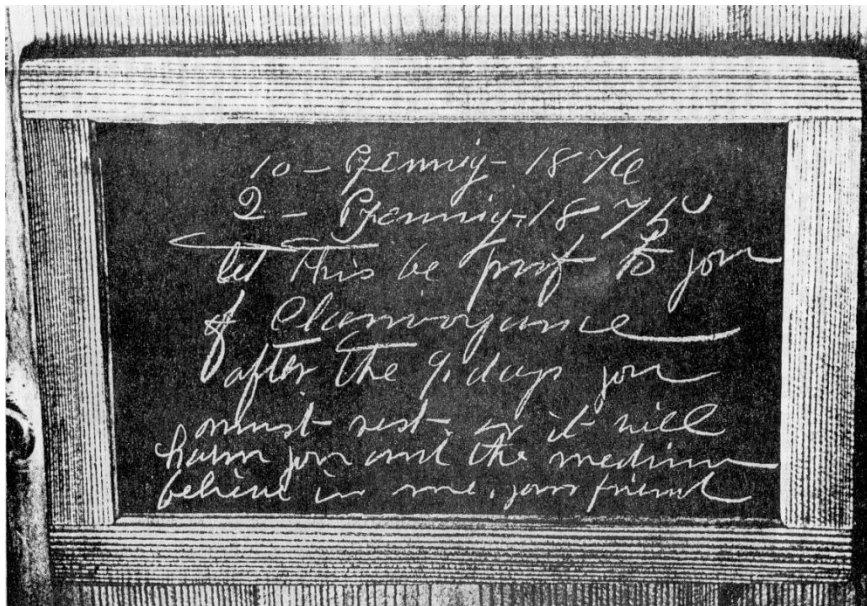 10 – Pfennig – 1876
2 – Pfennig – 1875
let this be proof to you
of Clairvoyance
after the 9. days you
must rest or it will
harm you and the medium
believe in me. your friend